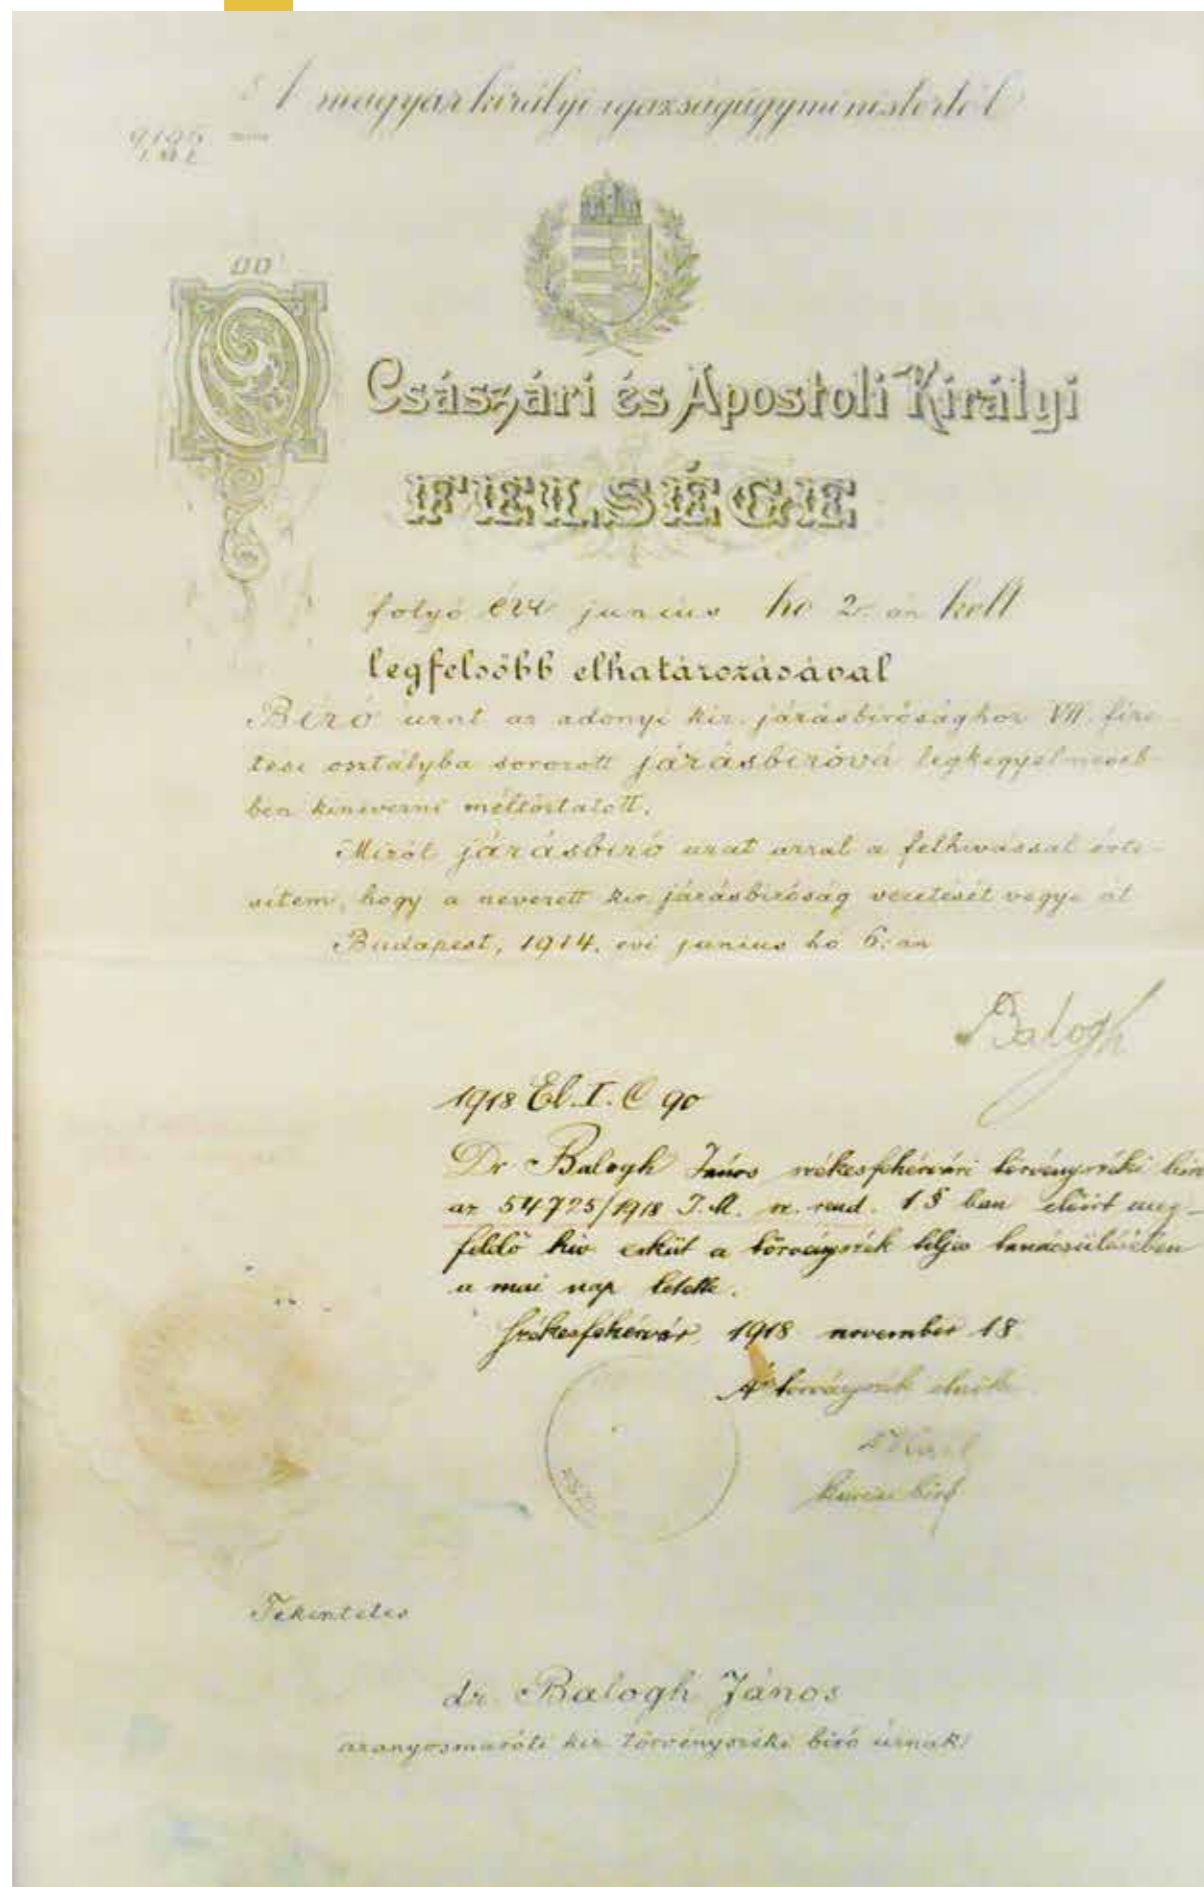 A magyar királyi igazságügyministertől
9105 szám
I.M.E.
Ő
Császári és Apostoli Királyi
FELSÉGE
folyó évi junius hó 2-án kelt
legfelsőbb elhatározásával
Biró urat az adonyi kir. járásbirósághoz VII. fize-
tési osztályba sorozott járásbiróvá legkegyelmeseb-
ben kinevezni méltóztatott.
Miről járásbiró urat azzal a felhivással érte-
sitem, hogy a nevezett kir. járásbiróság vezetését vegye át
Budapest, 1914. évi junius hó 6.-án
Balogh
1918 El. I. C 90
Dr Balogh János székesfehérvári törvényszéki biró
az 54725/1918 I.M. sz. rend. 1 § ban előirt meg-
felelő hiv. esküt a törvényszék teljes tanácsülésében
a mai nap letette.
Székesfehérvár, 1918 november 18
A törvényszék elnöke
kuriai biró
Tekintetes
dr. Balogh János
aranyosmaróti kir. törvényszéki biró úrnak